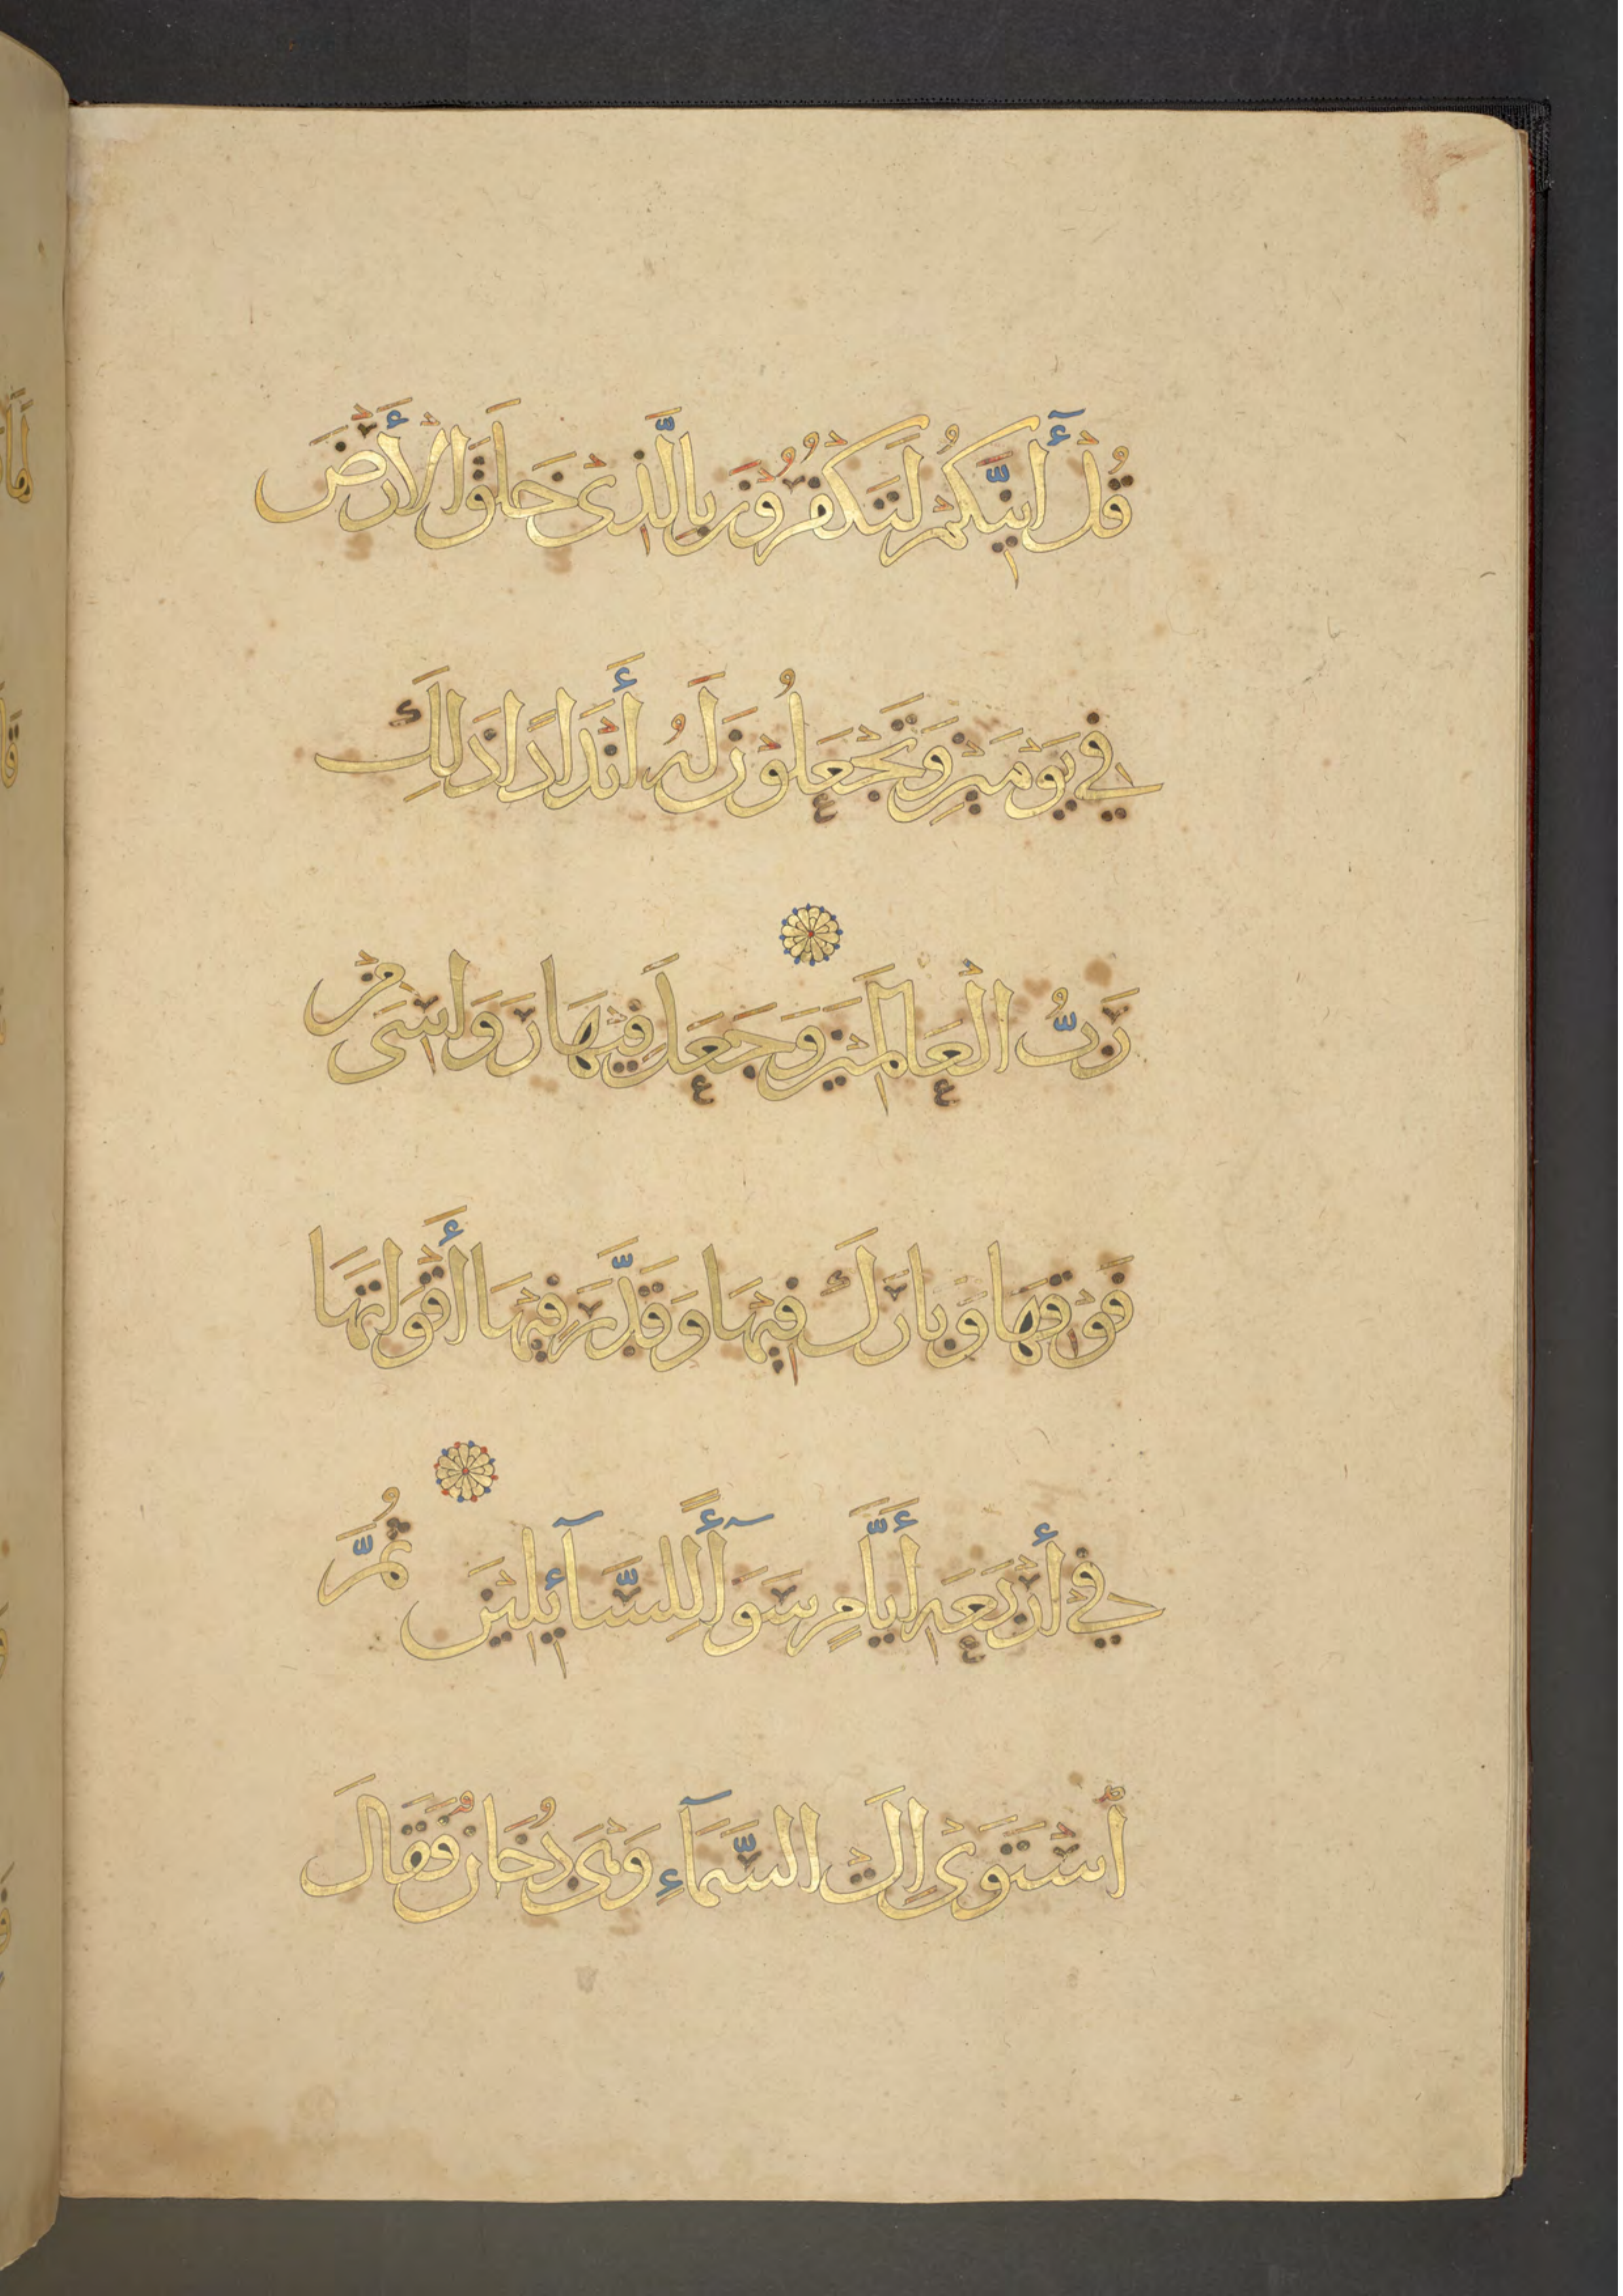 قُلْ أَئِنَّكُمْ لَتَكْفُرُونَ بِالَّذِي خَلَقَ الْأَرْضَ
فِي يَوْمَيْنِ وَتَجْعَلُونَ لَهُ أَنْدَادًا ذَلِكَ
رَبُّ الْعَالَمِينَ وَجَعَلَ فِيهَا رَوَاسِيَ مِنْ
فَوْقِهَا وَبَارَكَ فِيهَا وَقَدَّرَ فِيهَا أَقْوَاتَهَا
فِي أَرْبَعَةِ أَيَّامٍ سَوَآءً لِلسَّآئِلِينَ ثُمَّ
اسْتَوَى إِلَى السَّمَآءِ وَهْيَ دُخَانٌ فَقَالَ